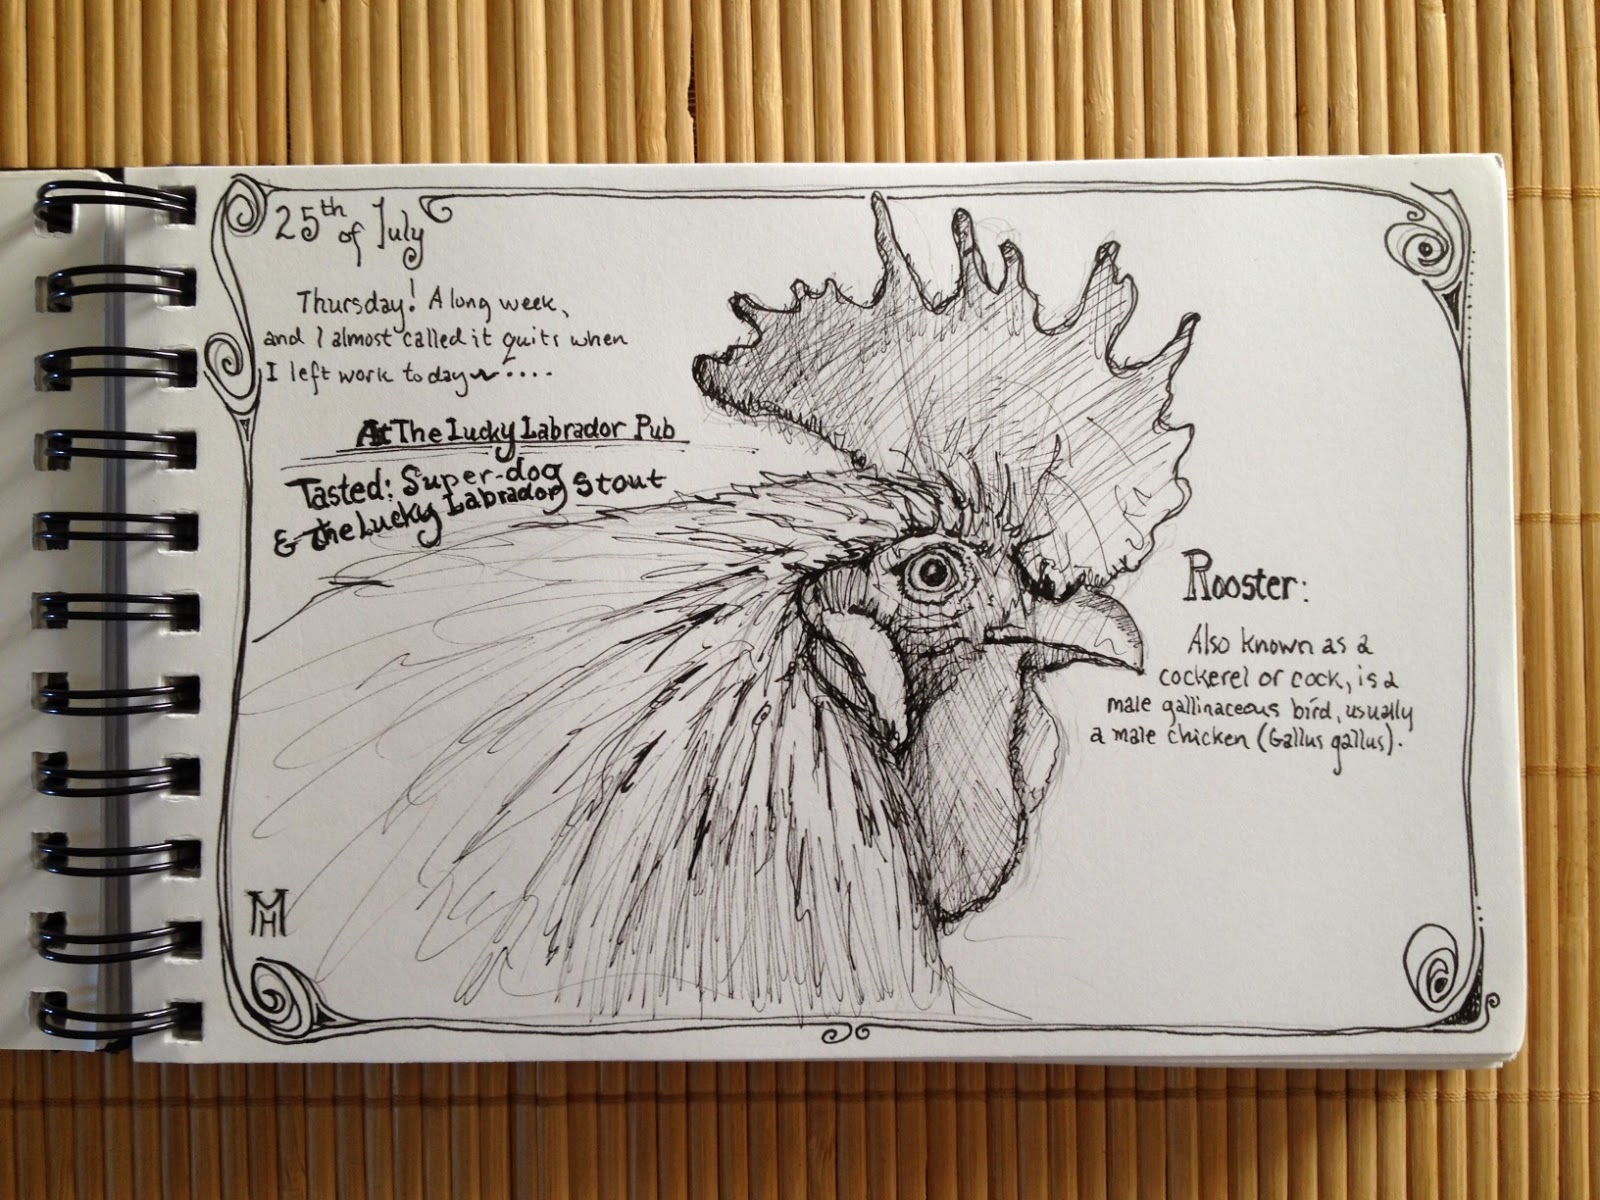 25th of July
Thursday! A long week,
and I almost called it quits when
I left work today ....
At The Lucky Labrador Pub
Tasted: Super-dog
& the Lucky Labrador Stout
Rooster:
Also known as a
cockerel or cock, is a
male gallinaceous bird, usually
a male chicken (Gallus gallus).
MH